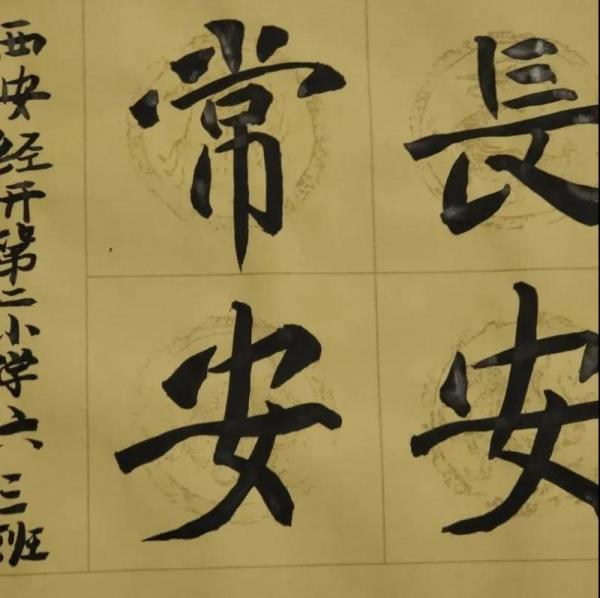 長安
常安
西安经开第二小学六三班